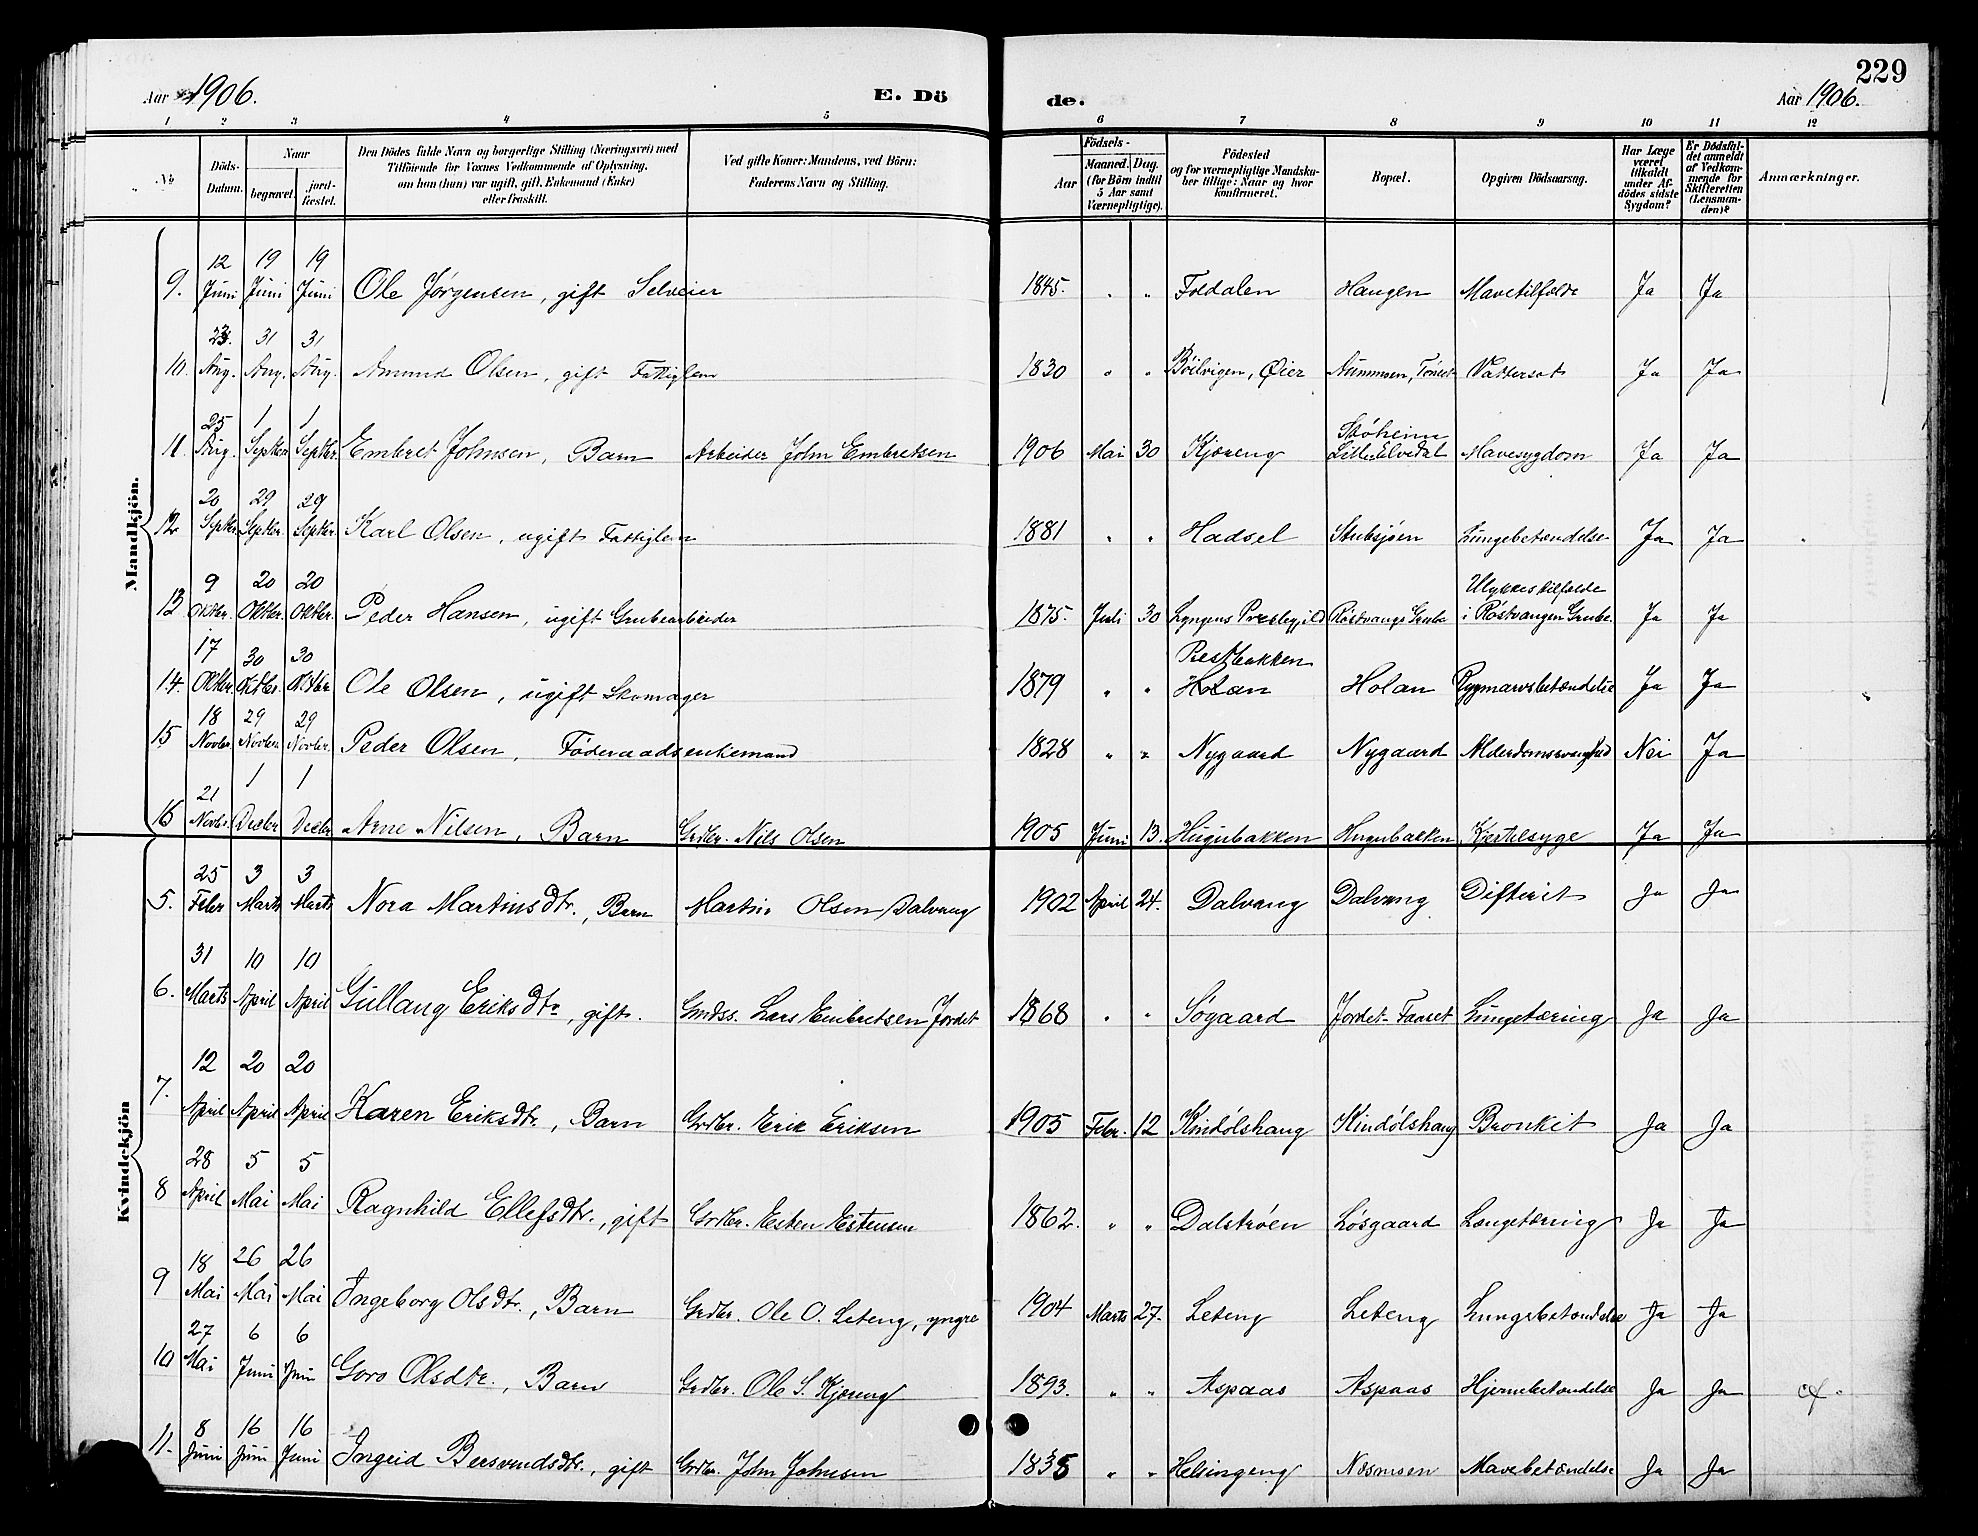 Aar 1906.
E. Dö
de.
229
Aar 1906.
1 2 3 4 5 6 7 8 9 10 11 12
No
Döds-Datum.
Naar
begravet
jord-fæstet.
Den Dödes fulde Navn og borgerlige Stilling (Næringsvei) med
Tilföiende for Voxnes Vedkommende af Oplysning,
om han (hun) var ugift, gift, Enkemand (Enke)
eller fraskilt.
Ved gifte Koner: Mandens, ved Börn:
Faderens Navn og Stilling.
Födsels-
Aar
Maaned. Dag.
(for Börn indtil
5 Aar samt
Værnepligtige).
Födested
og for værnepligtige Mandska-
ber tillige: Naar og hvor
konfirmeret.
Bopæl.
Opgiven Dödsaarsag.
Har Læge
været
tilkaldt
under Af-
dödes sidste
Sygdom?
Er Dödsfal-
det anmeldt
af Vedkom-
mende for
Skifteretten
(Lensman-
den)?
Anmærkninger.
Mandkjön.
9. 12 Juni 19 Juni 19 Juni Ole Jørgensen, gift Selveier 1845. " " Foldalen Haugen Mavetilfælde Ja Ja
10. 23. Aug. 31 Aug. 31 Aug. Amund Olsen, gift Fattiglem 1830 " " Böilvigen, Øier Vattersot Ja Ja
11. 25 Aug. 1 Septbr. 1 Septbr. Embret Johnsen, Barn Arbeider John Embretsen 1906 Mai 30 Kjøreng Lille Elvedal Mavesygdom Ja Ja
12 20 Septbr. 29 Septbr. 29 Septbr. Karl Olsen, ugift Fattiglem 1881 " " Hadsel Stubsjøen Lungebetændelse Ja Ja
13 9 Oktbr. 20 Oktbr. 20 Oktbr. Peder Hansen, ugift Grubearbeider 1875. Juli 30 Lyngens Prestegjeld Røstvangs Grube Ulykkestilfælde i Røstvangen Grube. Ja Ja
14. 17 Oktbr. 30 Oktbr. 30 Oktbr. Ole Olsen, ugift Skomager 1879 " " Holan Holan Rygmarvsbetændelse Ja Ja
15 18 Novbr. 29 Novbr. 29 Novbr. Peder Olsen, Föderaadsenkemand 1828 " " Nygaard Nygaard Alderdomssvaghed Nei Ja
16 21 Novbr. 1 Decbr 1 Decbr Arne Nilsen, Barn Grdbr. Nils Olsen 1905 Juni 13. Hugubakken Hugubakken Kjertelsyge Ja Ja
Kvindekjön
5. 25 Febr 3 Marts 3 Marts Nora Martinsdtr., Barn Martin Olsen Dalvang 1902 April 24. Dalvang Dalvang Difterit Ja Ja
6. 31 Marts 10 April 10 April Gullaug Eriksdtr, gift. Lars Embretsen Jordet 1868 " " Søgaard Jordet-Faaset Lungetæring Ja Ja
7. 12 April 20 April 20 April Karen Eriksdtr., Barn Grdbr. Erik Eriksen 1905 Febr. 12 Kindølshaug Kindølshaug Bronkit Ja Ja
8 28 April 5 Mai 5 Mai Ragnhild Ellefsdtr., gift Grdbr. Esten Estensen 1862. " " Dalstrøen Løsgaard Lungetæring Ja Ja
9 18 Mai 26 Mai 26 Mai Ingeborg Olsdtr., Barn Grdbr. Ole O. Leteng, yngre 1904 Marts 27. Leteng Leteng Lungebetændelse Ja Ja
10 27 Mai 6 Juni 6 Juni Goro Olsdtr., Barn Grdbr. Ole S. Kjøreng 1893. " " Aspaas Aspaas Hjernebetændelse Ja Ja cf.
11. 8 Juni 16 Juni 16 Juni Ingeid Bersvendsdtr., gift Grdbr. John Johnsen 1835 " " Helsingeng Næsmoen Mavebetændelse Ja Ja